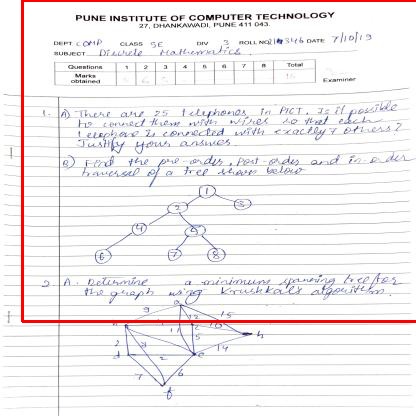 PUNE INSTITUTE OF COMPUTER TECHNOLOGY
27, DHANKAWADI, PUNE 411 043.
DEPT. COMP CLASS SE DIV 3 ROLL NO. DATE 7/10/19
SUBJECT Discrete Mathematics
Questions 1 2 3 4 5 6 7 8 Total
Marks obtained
Examiner
1. A) There are 25 telephones in PICT. Is it possible
to connect them with wires so that each
telephone is connected with exactly 7 others?
Justify your answer.
B) Find the pre-order, post-order and in-order
traversal of a tree shown below
1
2 3
4 5
6 7 8
2 A. Determine a minimum spanning tree for
the graph using Kruskhal's algorithm.
a
9 12 15
11 10
2 5 h
d 2 e 14
7 6
f